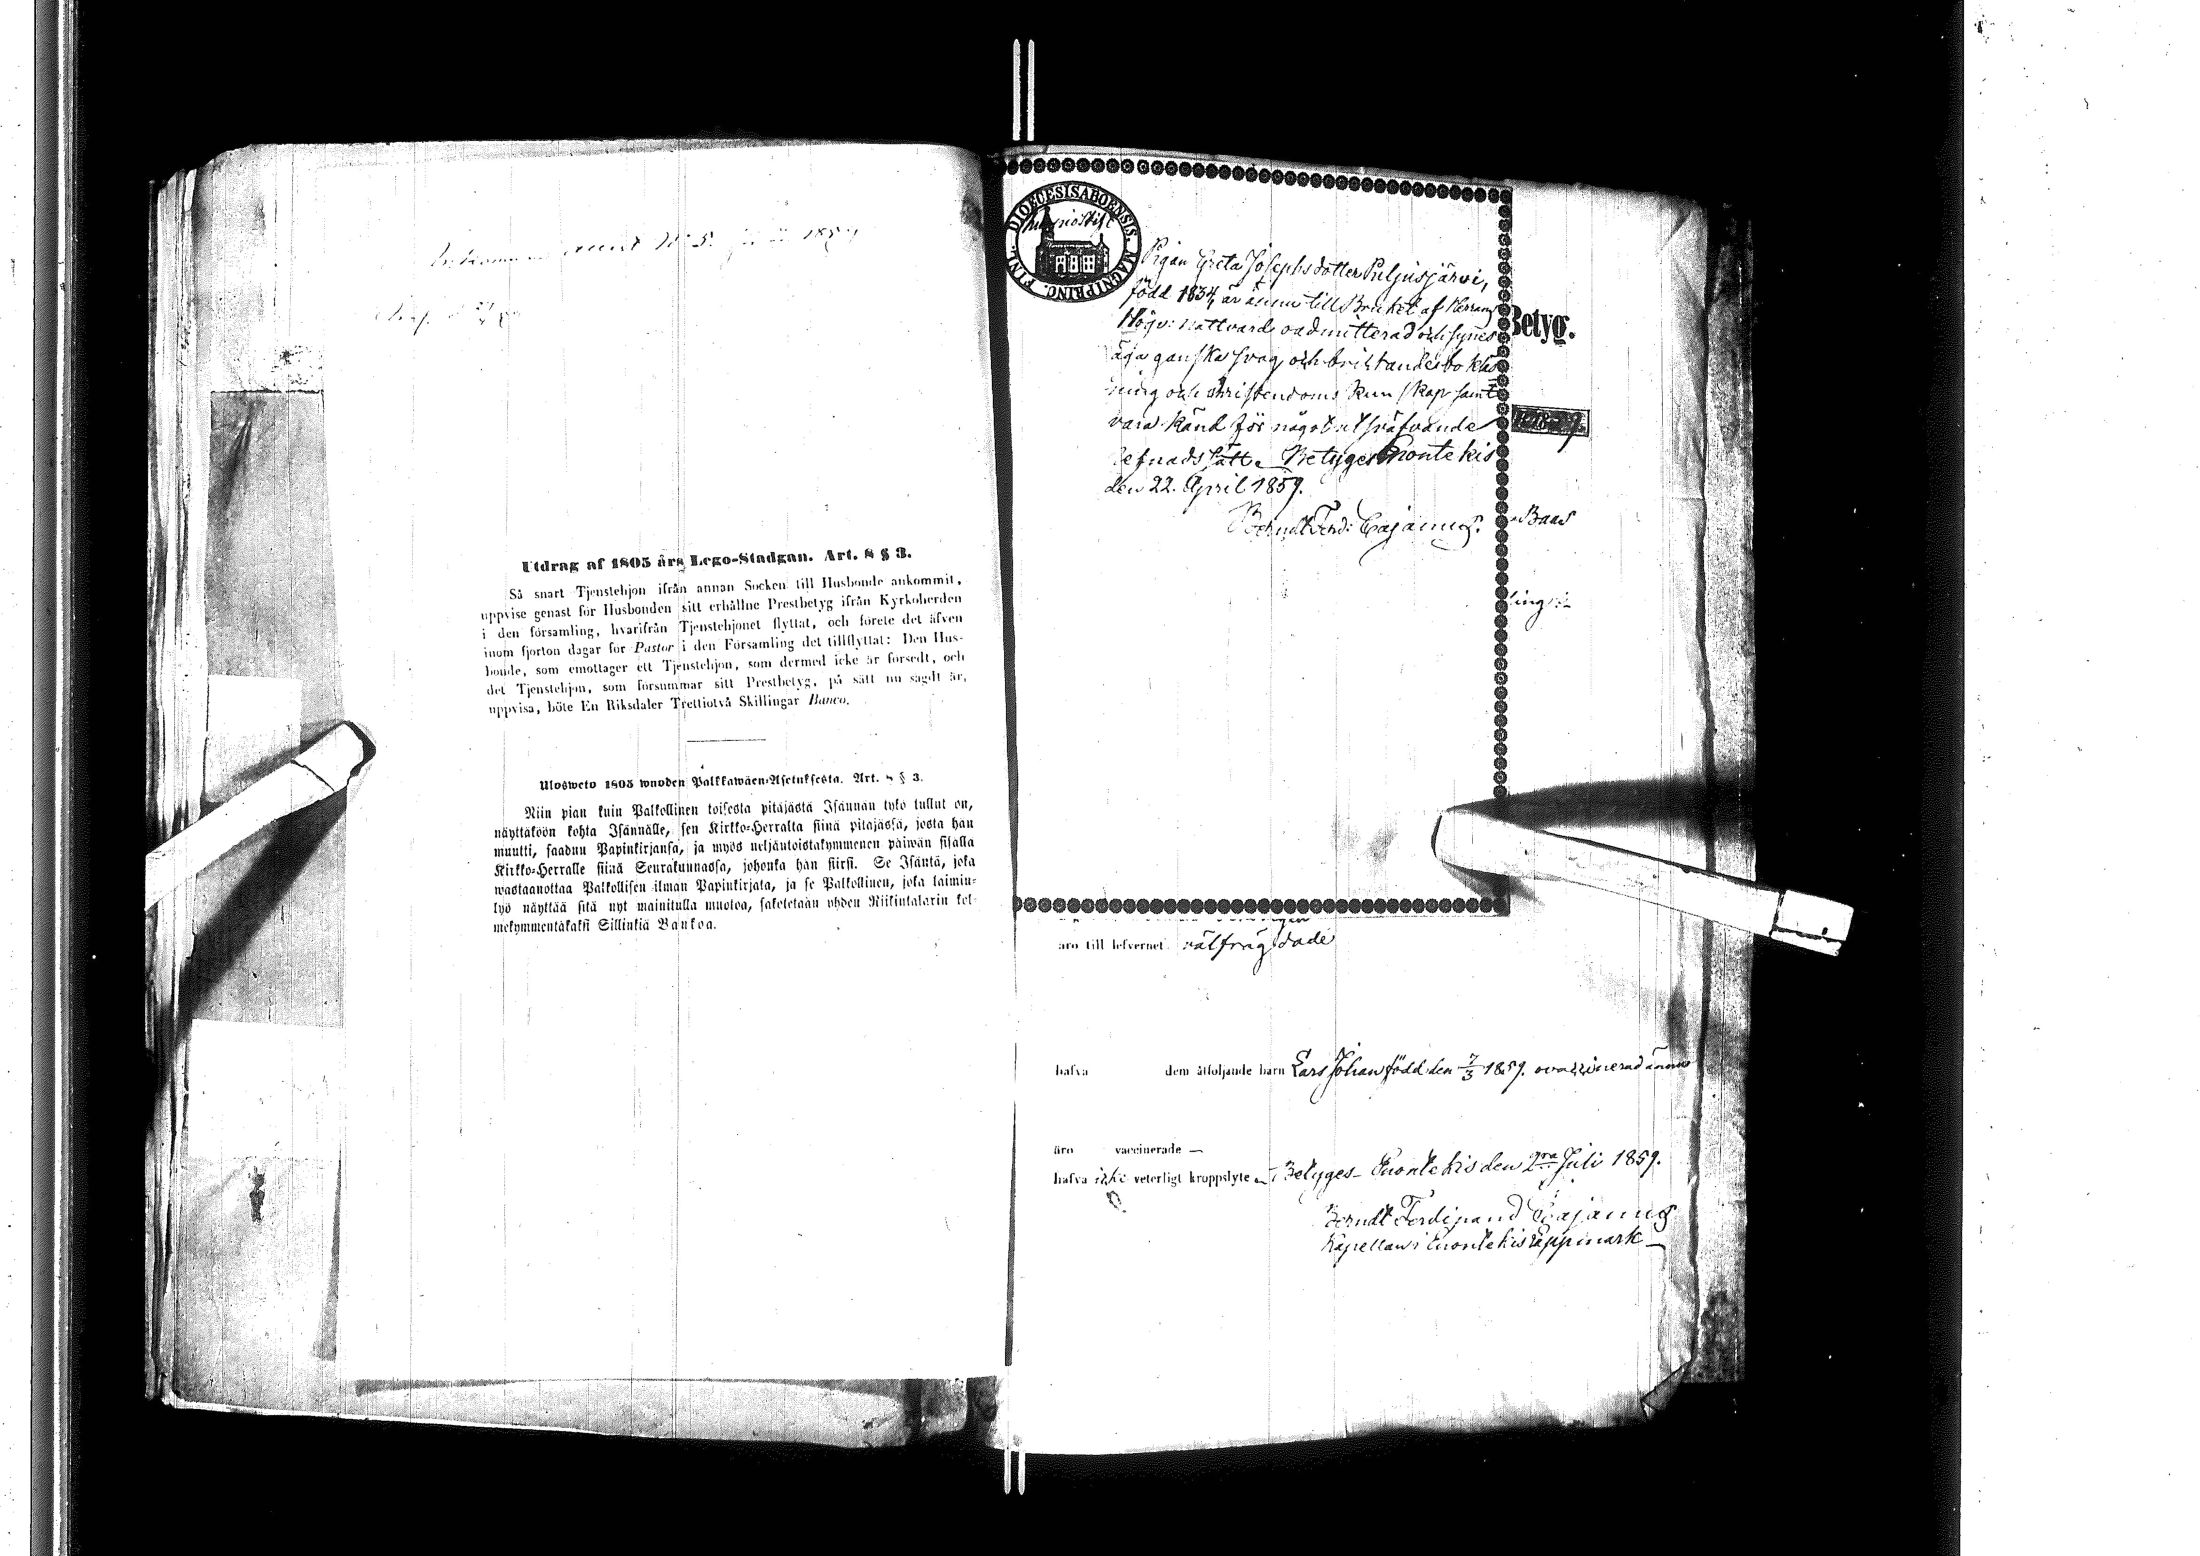 1859
Utdrag af 1805 års Lego-Stadgan. Art. 8 § 3.
Så snart Tjenstehjon ifrån annan Socken till Husbonde ankommit,
uppvise genast för Husbonden sitt erhållne Prestbetyg ifrån Kyrkoherden
i den församling, hvarifrån Tjenstehjonet flyttat, och förete det äfven
inom fjorton dagar för Pastor i den Församling det tillflyttat: Den Hus-
bonde, som emottager ett Tjenstehjon, som dermed icke är försedt, och
det Tjenstehjon, som försummar sitt Prestbetyg, på sätt nu sagdt är,
uppvisa, böte En Riksdaler Trettiotvå Skillingar Banco.
Ulosweto 1805 wuoden Palkkawäen-Asetuksesta. Art. 8 § 3.
Niin pian kuin Palkollinen toisesta pitäjästä Isännän tykö tullut on,
näyttäköön kohta Isännälle, sen Kirkko-Herralta siinä pitäjässä, josta hän
muutti, saadun Papinkirjansa, ja myös neljäntoistakymmenen päiwän sisällä
Kirkko-Herralle siinä Seurakunnassa, johonka hän siirsi. Se Isäntä, joka
wastaanottaa Palkollisen ilman Papinkirjata, ja se Palkollinen, joka laimin-
lyö näyttää sitä nyt mainitulla muotoa, sakotetaan yhden Riikintalarin kol-
mekymmentäkaksi Sillinkiä Bankoa.
DIOECESIS ABOENSIS. MAGNI PRINC. FINL.
Pigan Greta Josephsdotter Puljusjärvi,
född 1834, är ännu till Bruket af Herrans
Högv: nattvard oadmitterad och synes
äga ganska svag och bristande boklä
ning och christendoms kunskap samt
vara känd för något utsväfvande
lefnadssätt. Betyges Enontekis
den 22. April 1859.
Berndt Ferd: Cajanus.
Betyg.
äro till lefvernet välfrägdade
hafva dem åtföljande barn Lars Johan född den 7/3 1859. ovaccinerad ännu
äro vaccinerade —
hafva icke veterligt kroppslyte — Betyges Enontekis den 2dra Juli 1859.
Berndt Ferdinand Cajanus
Kapellan i Enontekis Lappmark —